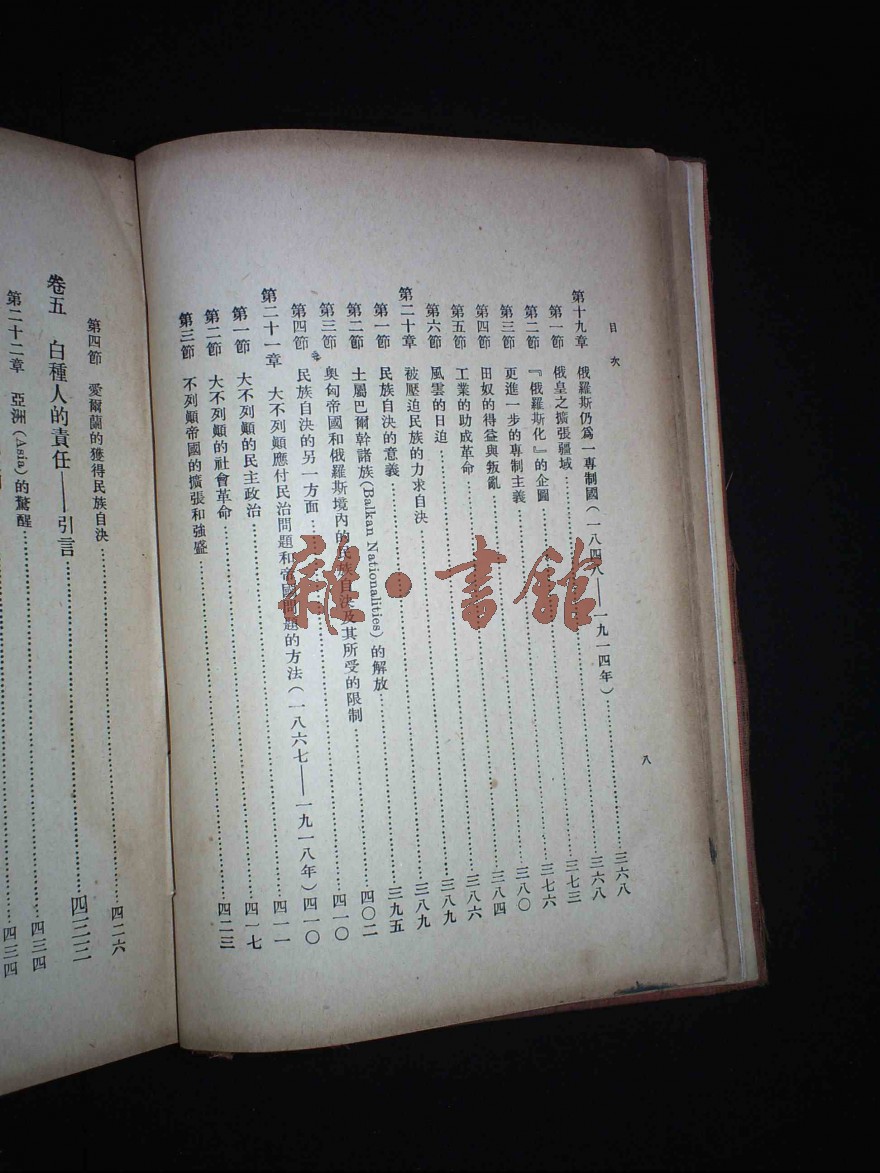 目次
八
第十九章 俄羅斯仍爲一專制國(一八四八——一九一四年)……三六八
第一節 俄皇之擴張疆域……三六八
第二節 『俄羅斯化』的企圖……三七三
第三節 更進一步的專制主義……三七六
第四節 田奴的得益與叛亂……三八〇
第五節 工業的助成革命……三八四
第六節 風雲的日迫……三八六
第二十章 被壓迫民族的力求自決……三八九
第一節 民族自決的意義……三八九
第二節 土屬巴爾幹諸族(Balkan Nationalities)的解放……三九五
第三節 奧匈帝國和俄羅斯境內的民族自決及其所受的限制……四〇二
第四節 民族自決的另一方面……四一〇
第二十一章 大不列顚應付民治問題和帝國問題的方法(一八六七——一九一八年)四一〇
第一節 大不列顚的民主政治……四一一
第二節 大不列顚的社會革命……四一七
第三節 不列顚帝國的擴張和強盛……四二三
第四節 愛爾蘭的獲得民族自決……四二六
卷五 白種人的責任——引言……四三三
第二十二章 亞洲(Asia)的驚醒……四三四
四三四
雜·書館